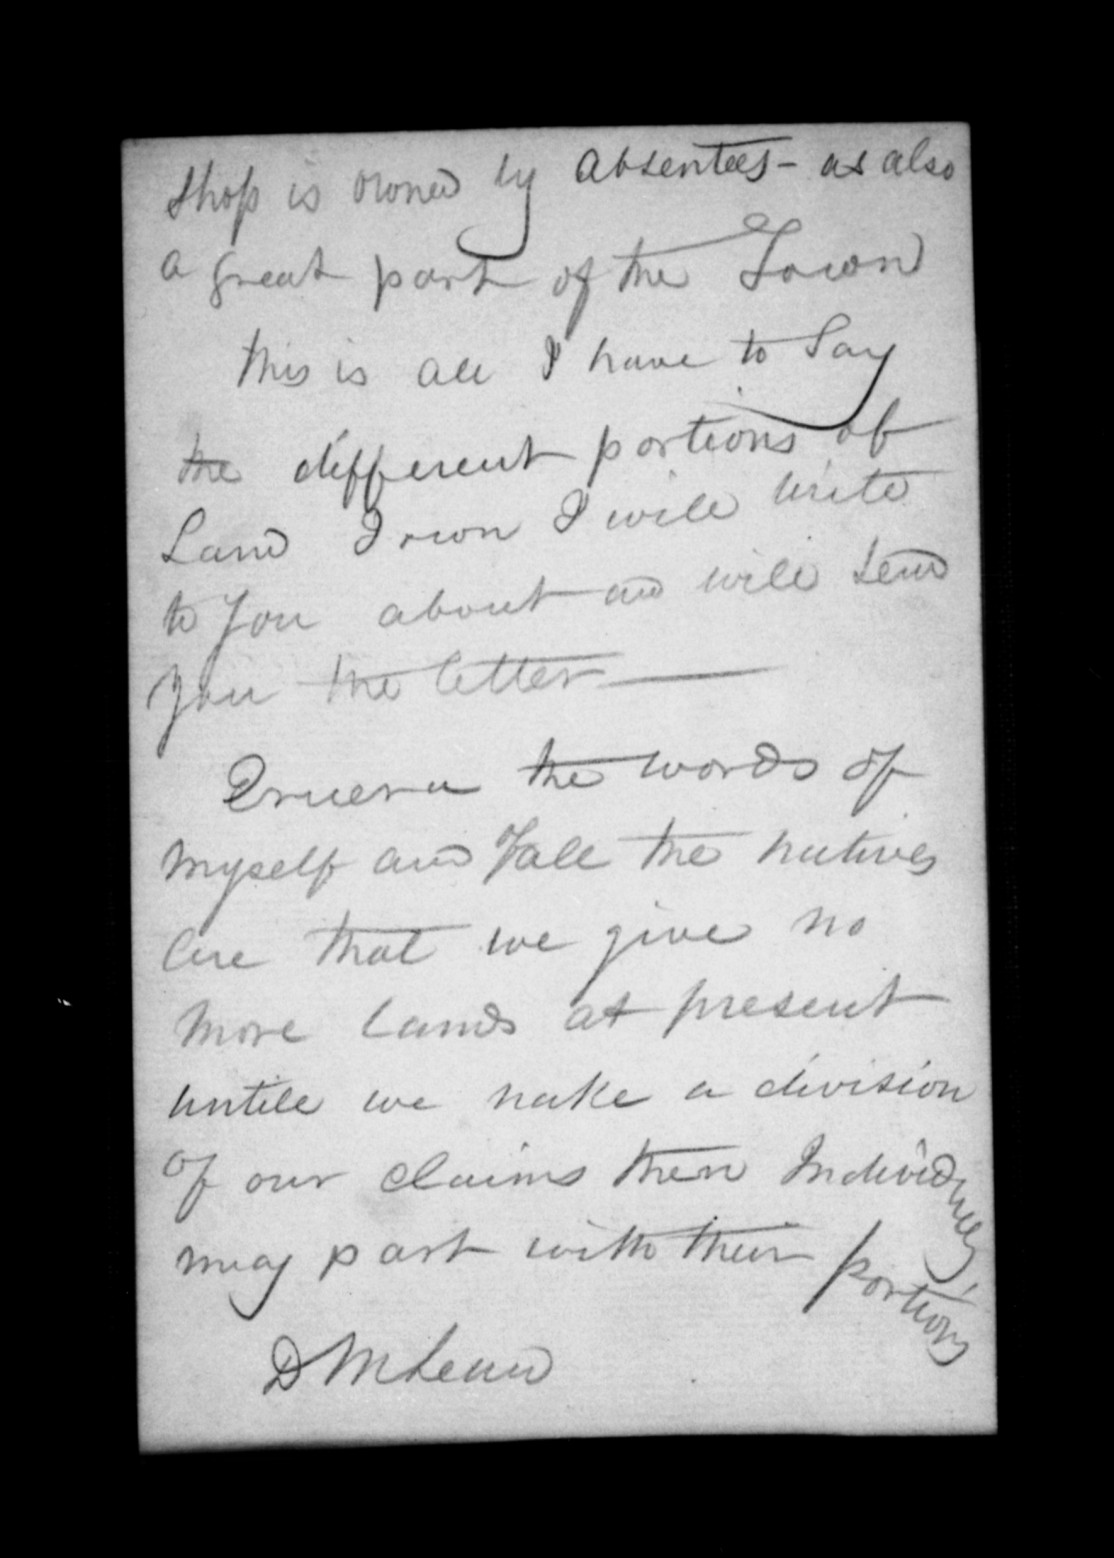 Shop is owned by absentees - as also
a great part of the Town
this is all I have to Say
the different portions of
Land I own I will write
to You about and will send
you the letter
the words of
myself and of all the natives
are that we give no
more lands at present
untill we make a division
of our claims then Individuals
may part with their portions
D McLean